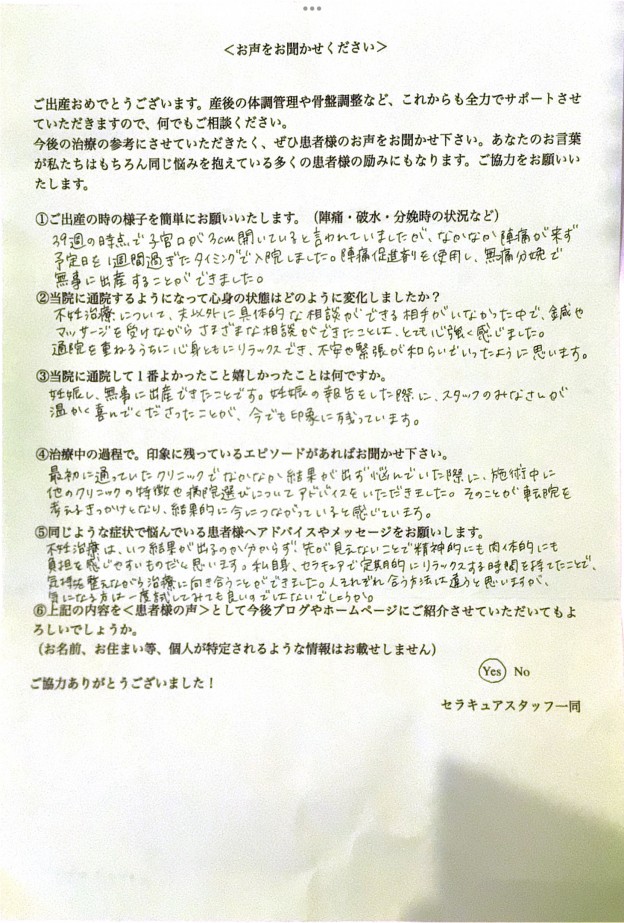 ＜お声をお聞かせください＞
ご出産おめでとうございます。産後の体調管理や骨盤調整など、これからも全力でサポートさせ
ていただきますので、何でもご相談ください。
今後の治療の参考にさせていただきたく、ぜひ患者様のお声をお聞かせ下さい。あなたのお言葉
が私たちはもちろん同じ悩みを抱えている多くの患者様の励みにもなります。ご協力をお願いい
たします。
①ご出産の時の様子を簡単にお願いいたします。（陣痛・破水・分娩時の状況など）
39週の時点で子宮口が3cm開いていると言われていましたが、なかなか陣痛が来ず
予定日を1週間過ぎたタイミングで入院しました。陣痛促進剤を使用し、無痛分娩で
無事に出産することができました。
②当院に通院するようになって心身の状態はどのように変化しましたか？
不妊治療について、夫以外に具体的な相談ができる相手がいなかった中で、鍼灸や
マッサージを受けながらさまざまな相談ができたことは、とても心強く感じました。
通院を重ねるうちに心身ともにリラックスでき、不安や緊張が和らいでいったように思います。
③当院に通院して１番よかったこと嬉しかったことは何ですか。
妊娠し、無事に出産できたことです。妊娠の報告をした際に、スタッフのみなさんが
温かく喜んでくださったことが、今でも印象に残っています。
④治療中の過程で。印象に残っているエピソードがあればお聞かせ下さい。
最初に通っていたクリニックでなかなか結果が出ず悩んでいた際に、施術中に
他のクリニックの特徴や病院選びについてアドバイスをいただきました。そのことが転院を
考えるきっかけとなり、結果的に今につながっていると感じています。
⑤同じような症状で悩んでいる患者様へアドバイスやメッセージをお願いします。
不妊治療は、いつ結果が出るのか分からず、先が見えないことで精神的にも肉体的にも
負担を感じやすいものだと思います。私自身、セラキュアで定期的にリラックスする時間を持てたことで、
気持ちを整えながら治療に向き合うことができました。人それぞれ合う方法は違うと思いますが、
気になる方は一度試してみても良いのではないでしょうか。
⑥上記の内容を＜患者様の声＞として今後ブログやホームページにご紹介させていただいてもよ
ろしいでしょうか。
（お名前、お住まい等、個人が特定されるような情報はお載せしません）
Yes No
ご協力ありがとうございました！
セラキュアスタッフ一同